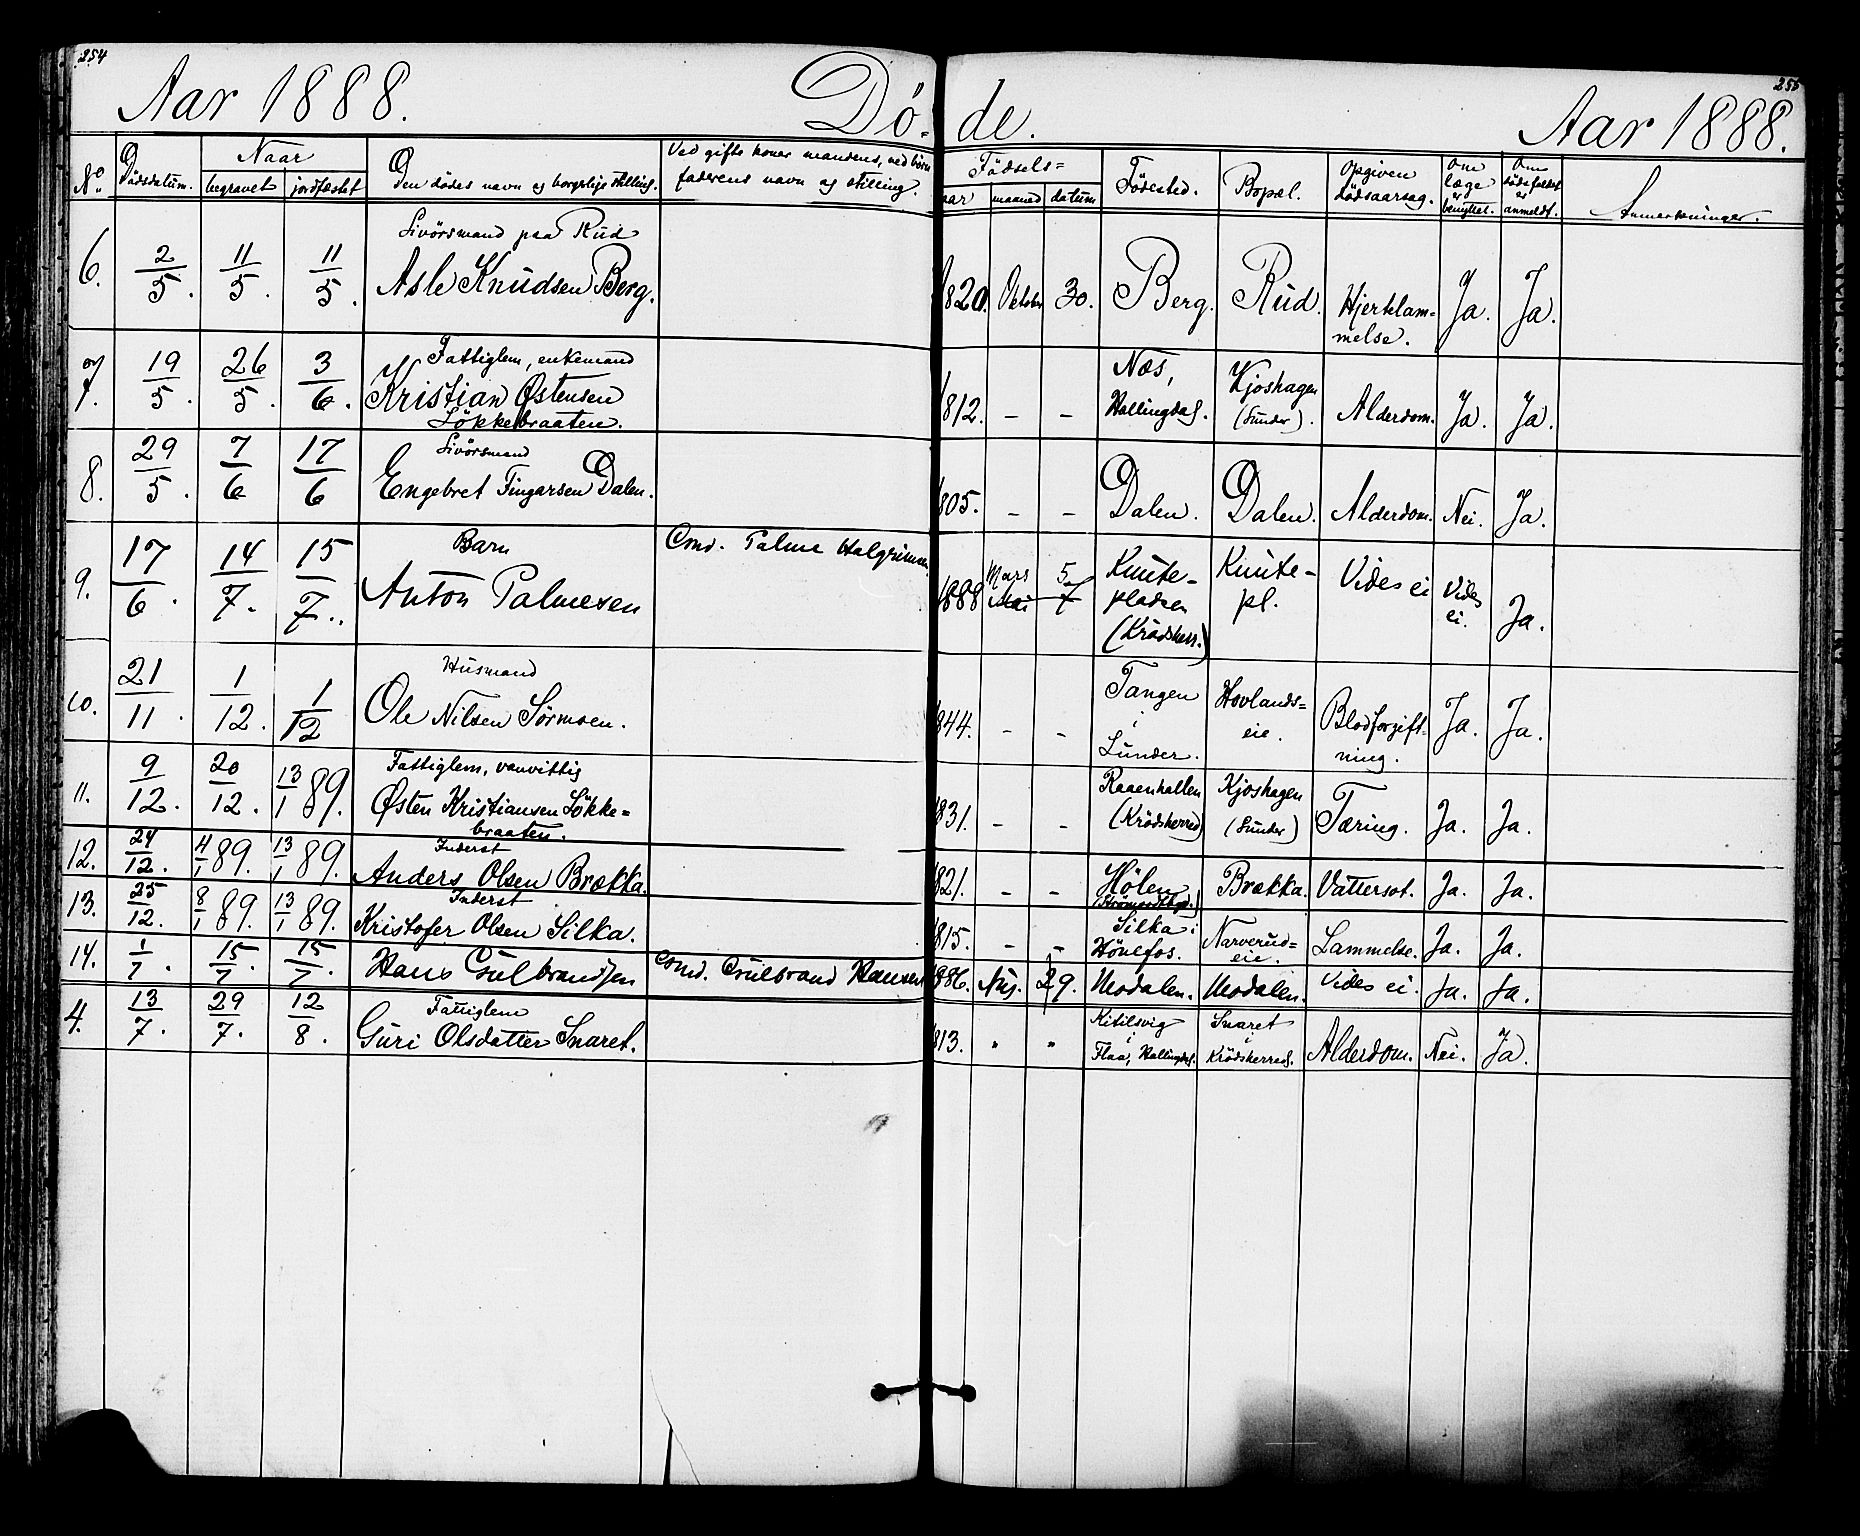 254
255
Aar 1888. Dö- de. Aar 1888.
No. Dödsdatum. Naar begravet jordfæstet Den dödes navn og borgerlige stilling. Ved gifte koner mandens, ved börn faderens navn og stilling. Födsels= aar maaned datum Födested. Bopæl. Opgiven dödsaarsag. Om læge er benyttet. Om dödsfaldet er anmeldt. Anmerkninger.
6. 2/5. 11/5. 11/5. Livörsmand paa Rud
Asle Knudsen Berg. 1820. Oktober 30. Berg. Rud. Hjerklam=
melse. Ja. Ja.
7. 19/5. 26/5. 3/6. Fattiglem, enkemand
Kristian Østensen
Lökkebraaten. 1812. – – Næs,
Hallingdal. Kjoshagen
(Lunder). Alderdom. Ja. Ja.
8. 29/5. 7/6 17/6 Livörsmand
Engebret Fingarsen Dalen. 1805. – – Dalen. Dalen. Alderdom. Nei. Ja.
9. 17/6. 14/7. 15/7. Barn
Anton Palmesen Cmd. Palme Halgrimsen. 1888 Mars 5
Mai 7 Knute-
pladsen
(Krödsherr.) Knute-
pl. Vides ei Vides
ei. Ja.
10. 21/11. 1/12. 1/12 Husmand
Ole Nilsen Sörmoen. 1844. – – Tangen
i
Lunder. Hovlands=
eie. Blodforgift-
ning. Ja. Ja.
11. 9/12. 20/12. 13/1 89. Fattiglem, vanvittig
Østen Kristiansen Lökke=
braaten. 1831. – – Raaenhallen
(Krödsherred) Kjoshagen
(Lunder) Tæring. Ja. Ja.
12. 24/12. 4/1 89. 13/1 89. Inderst
Anders Olsen Brækka. 1821. – – Hölen Brækka. Vattersot. Ja. Ja.
13. 25/12. 8/1 89. 13/1 89. Inderst
Kristofer Olsen Silka. 1815. – – Silka i
Hönefos. Narverud=
eie. Lammelse. Ja. Ja.
14. 1/7. 15/7. 15/7. Hans Gulbrandsen Cmd. Gulbrand Hansen 1886. Aug. 29. Modalen. Modalen. Vides ei. Ja. Ja.
4. 13/7. 29/7. 12/8. Fattiglem
Guri Olsdatter Snaret. 1813. " " Kitilsvig
i
Flaa, Hallingdal. Snaret
i
Krödsherred. Alderdom. Nei. Ja.